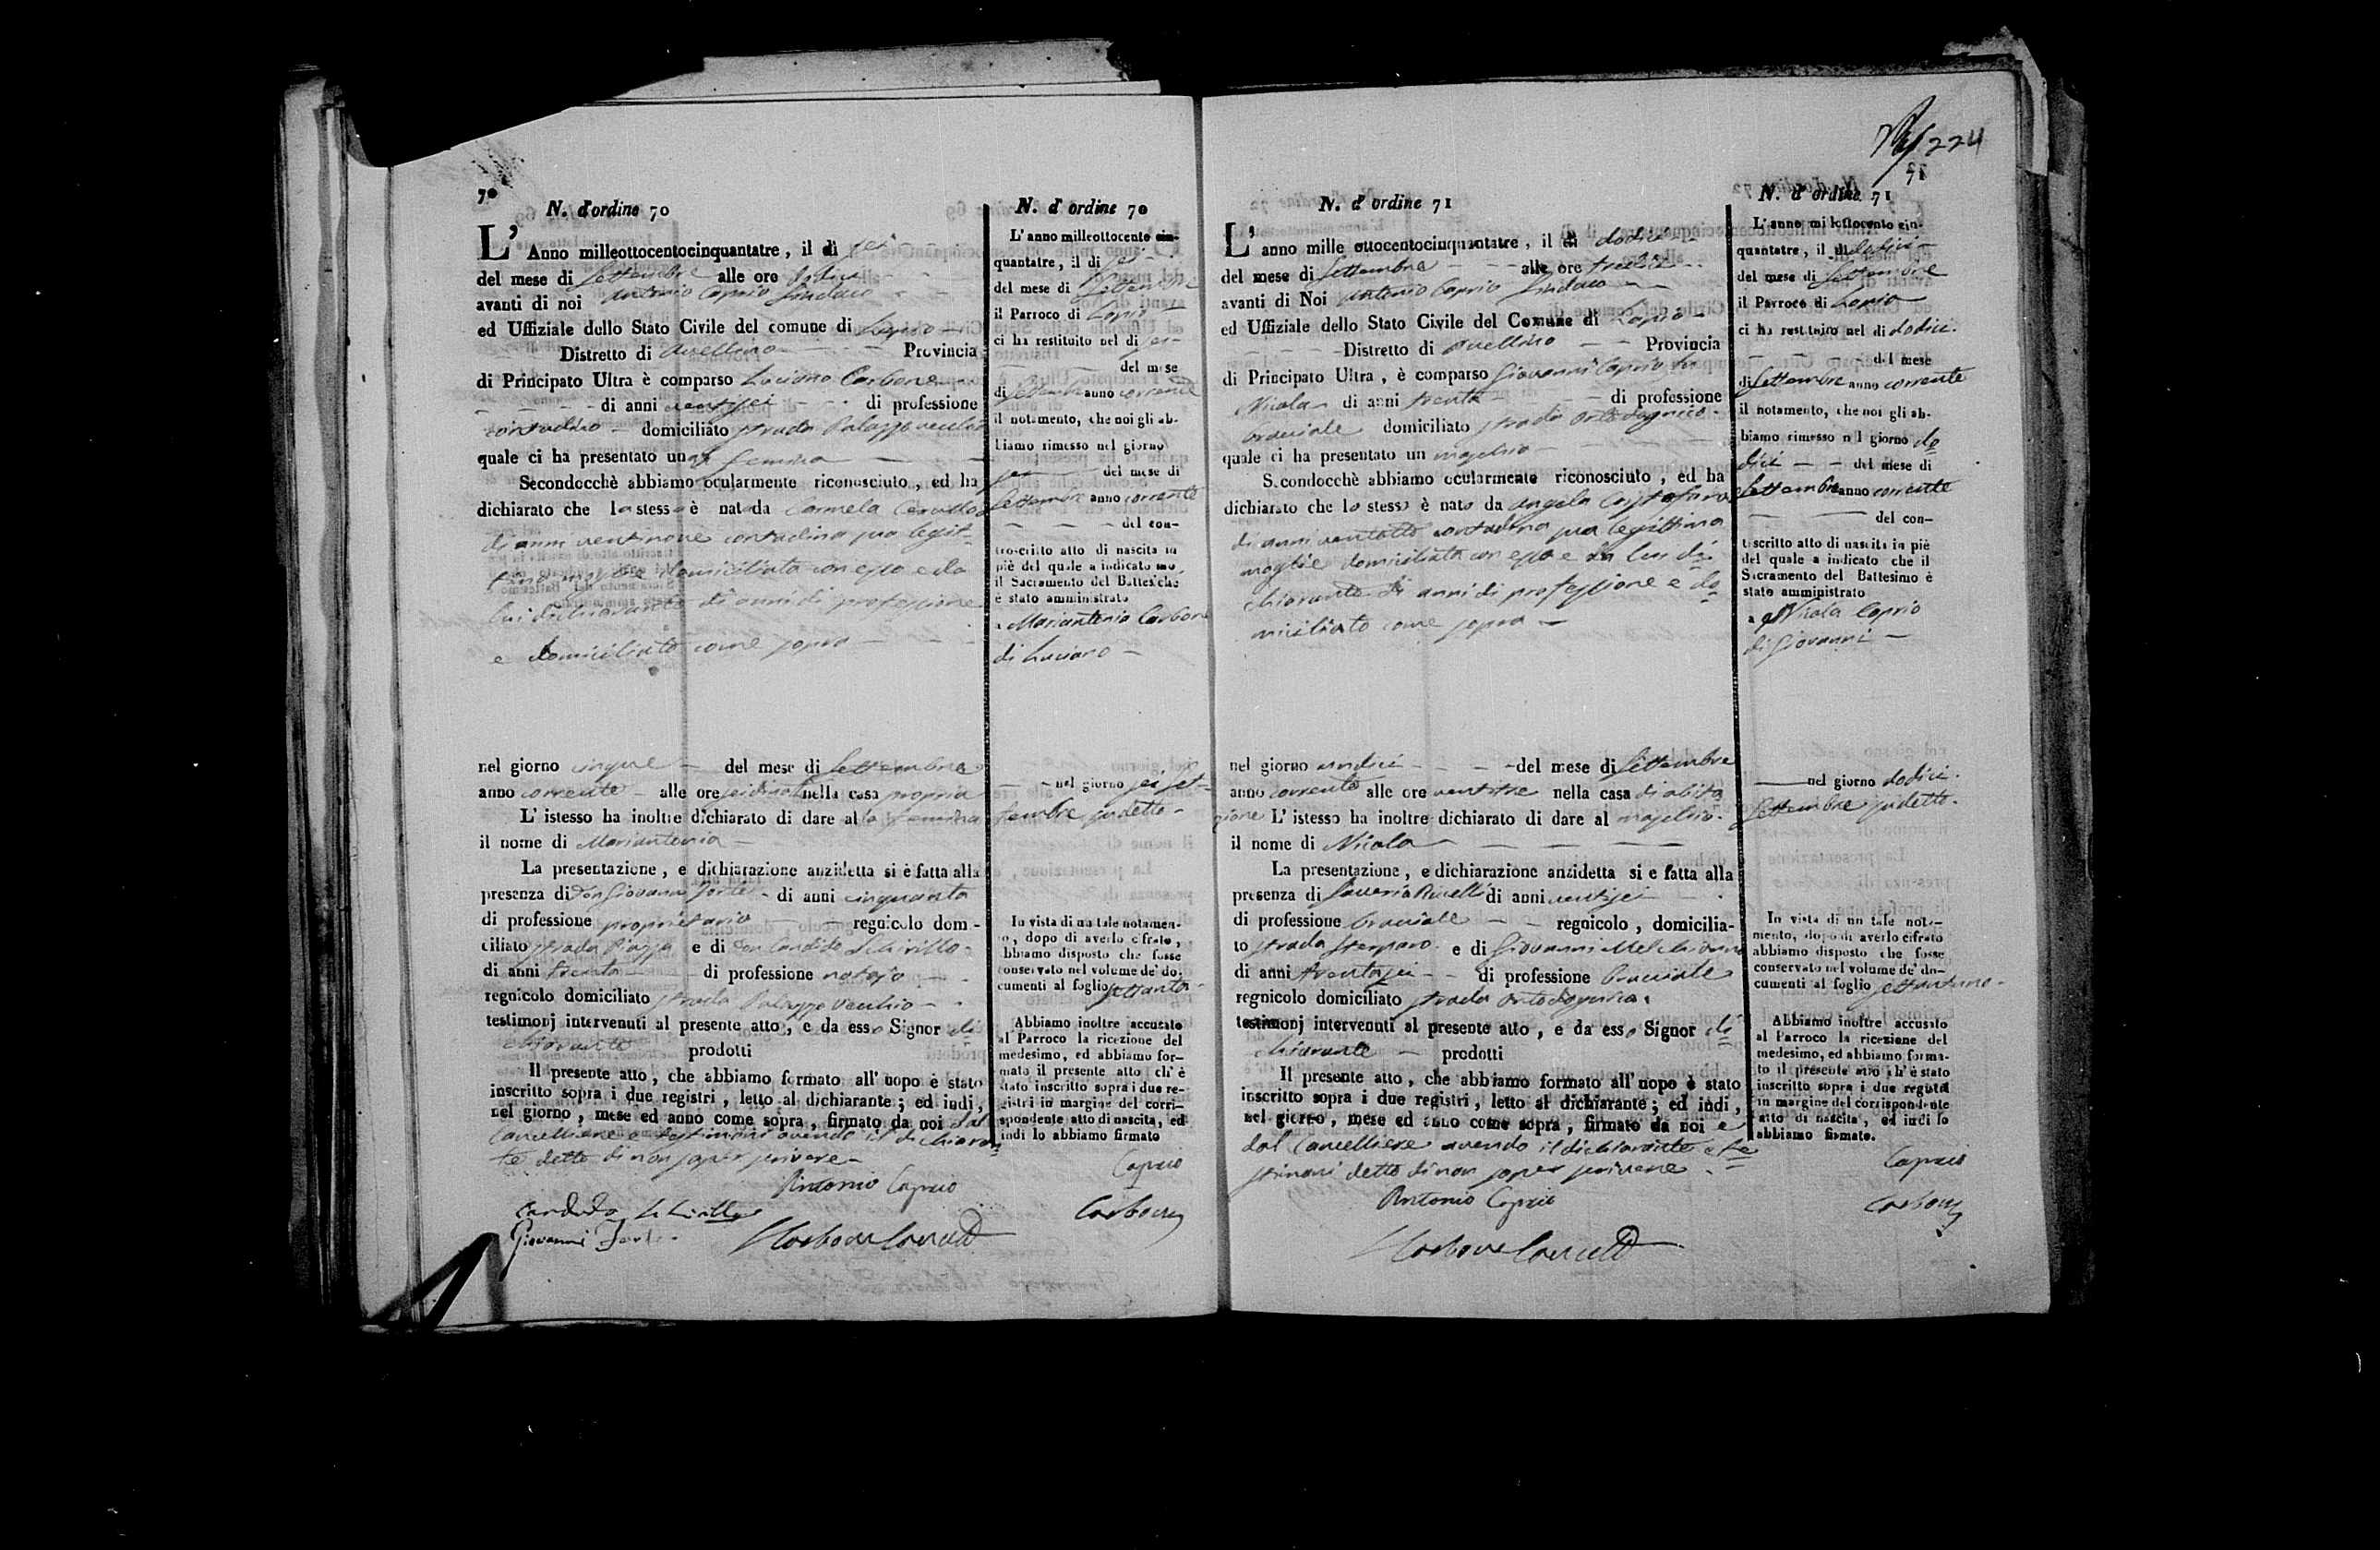 70
N. d'ordine 70
L' Anno milleottocentocinquantatre, il dì sei
del mese di Settembre alle ore
avanti di noi Antonio Caprio Sindaco
ed Uffiziale dello Stato Civile del comune di Lapio
Distretto di Avellino Provincia
di Principato Ultra è comparso Luciano Carbone
di anni ventisei di professione
contadino domiciliato strada Palazzo vecchio
quale ci ha presentato una femina
Secondocchè abbiamo ocularmente riconosciuto, ed ha
dichiarato che la stessa è nata da Carmela
di anni ventinove contadina sua legit-
tima moglie domiciliata con esso e da
lui dichiarante di anni di professione
e domiciliato come sopra
nel giorno cinque del mese di Settembre
anno corrente alle ore sedici nella casa propria
L' istesso ha inoltre dichiarato di dare alla femina
il nome di Mariantonia
La presentazione, e dichiarazione anzidetta si è fatta alla
presenza di Don Giovanni Forte di anni cinquanta
di professione proprietario regnicolo dom-
ciliato strada Piazza e di Don Candido Schirillo
di anni trenta di professione notajo
regnicolo domiciliato strada Palazzo vecchio
testimonj intervenuti al presente atto, e da esso Signor di
chiarante prodotti
Il presente atto, che abbiamo formato all' uopo è stato
inscritto sopra i due registri, letto al dichiarante; ed indi,
nel giorno, mese ed anno come sopra, firmato da noi dal
Cancelliere e testimoni avendo il dichiaran
te detto di non saper scrivere
Antonio Caprio
Candido Schirillo
Giovanni Forte
Carbone
N. d' ordine 70
L' anno milleottocento cin-
quantatre, il dì sei
del mese di Settembre
il Parroco di Lapio
ci ha restituito nel dì sei
del mese
di Settembre anno corrente
il notamento, che noi gli ab-
biamo rimesso nel giorno
sei del mese di
Settembre anno corrente
del con-
troscritto atto di nascita in
piè del quale a indicato
il Sacramento del Battes che
è stato amministrato
a Mariantonia Carbone
di Luciano
nel giorno sei Set-
tembre sudetto
In vista di un tale notamen-
to, dopo di averlo cifrato,
abbiamo disposto che fosse
conservato nel volume de' do-
cumenti al foglio settanta
Abbiamo inoltre accusato
al Parroco la ricezione del
medesimo, ed abbiamo for-
mato il presente atto ch' è
stato inscritto sopra i due re-
gistri in margine del corri-
spondente atto di nascita, ed
indi lo abbiamo firmato
Caprio
Carbone
224
71
N. d' ordine 71
L' anno mille ottocentocinquantatre, il dì dodici
del mese di Settembre alle ore tredici
avanti di Noi Antonio Caprio Sindaco
ed Uffiziale dello Stato Civile del Comune di Lapio
Distretto di Avellino Provincia
di Principato Ultra, è comparso Giovanni Caprio fu
Nicola di anni trenta di professione
bracciale domiciliato strada
quale ci ha presentato un maschio
Secondocchè abbiamo ocularmente riconosciuto, ed ha
dichiarato che lo stesso è nato da Angela Cristofaro
di anni ventotto contadina sua legittima
moglie domiciliata con esso e da lui di-
chiarante di anni di professione e do-
miciliato come sopra
nel giorno undici del mese di Settembre
anno corrente alle ore ventitre nella casa di abita
zione L' istesso ha inoltre dichiarato di dare al maschio
il nome di Nicola
La presentazione, e dichiarazione anzidetta si e fatta alla
presenza di Saverio di anni ventisei
di professione bracciale regnicolo, domicilia-
to strada e di Giovanni Melchionna
di anni trentasei di professione bracciale
regnicolo domiciliato strada
testimonj intervenuti al presente atto, e da esso Signor di
chiarante prodotti
Il presente atto, che abbiamo formato all' uopo è stato
inscritto sopra i due registri, letto al dichiarante; ed indi,
nel giorno, mese ed anno come sopra, firmato da noi e
dal Cancelliere avendo il dichiarante e te
stimoni detto di non saper scrivere
Antonio Caprio
Carbone
N. d' ordine 71
L' anno milleottocento cin-
quantatre, il dì dodici
del mese di Settembre
il Parroco di Lapio
ci ha restituito nel dì dodici
del mese
di Settembre anno corrente
il notamento, che noi gli ab-
biamo rimesso nel giorno do
dici del mese di
Settembre anno corrente
del con-
troscritto atto di nascita in piè
del quale a indicato che il
Sacramento del Battesimo è
stato amministrato
a Nicola Caprio
di Giovanni
nel giorno dodici
Settembre sudetto
In vista di un tale nota-
mento, dopo di averlo cifrato
abbiamo disposto che fosse
conservato nel volume de' do-
cumenti al foglio settantuno
Abbiamo inoltre accusato
al Parroco la ricezione del
medesimo, ed abbiamo forma-
to il presente atto ch' è stato
inscritto sopra i due registri
in margine del corrispondente
atto di nascita, ed indi lo
abbiamo firmato.
Caprio
Carbone